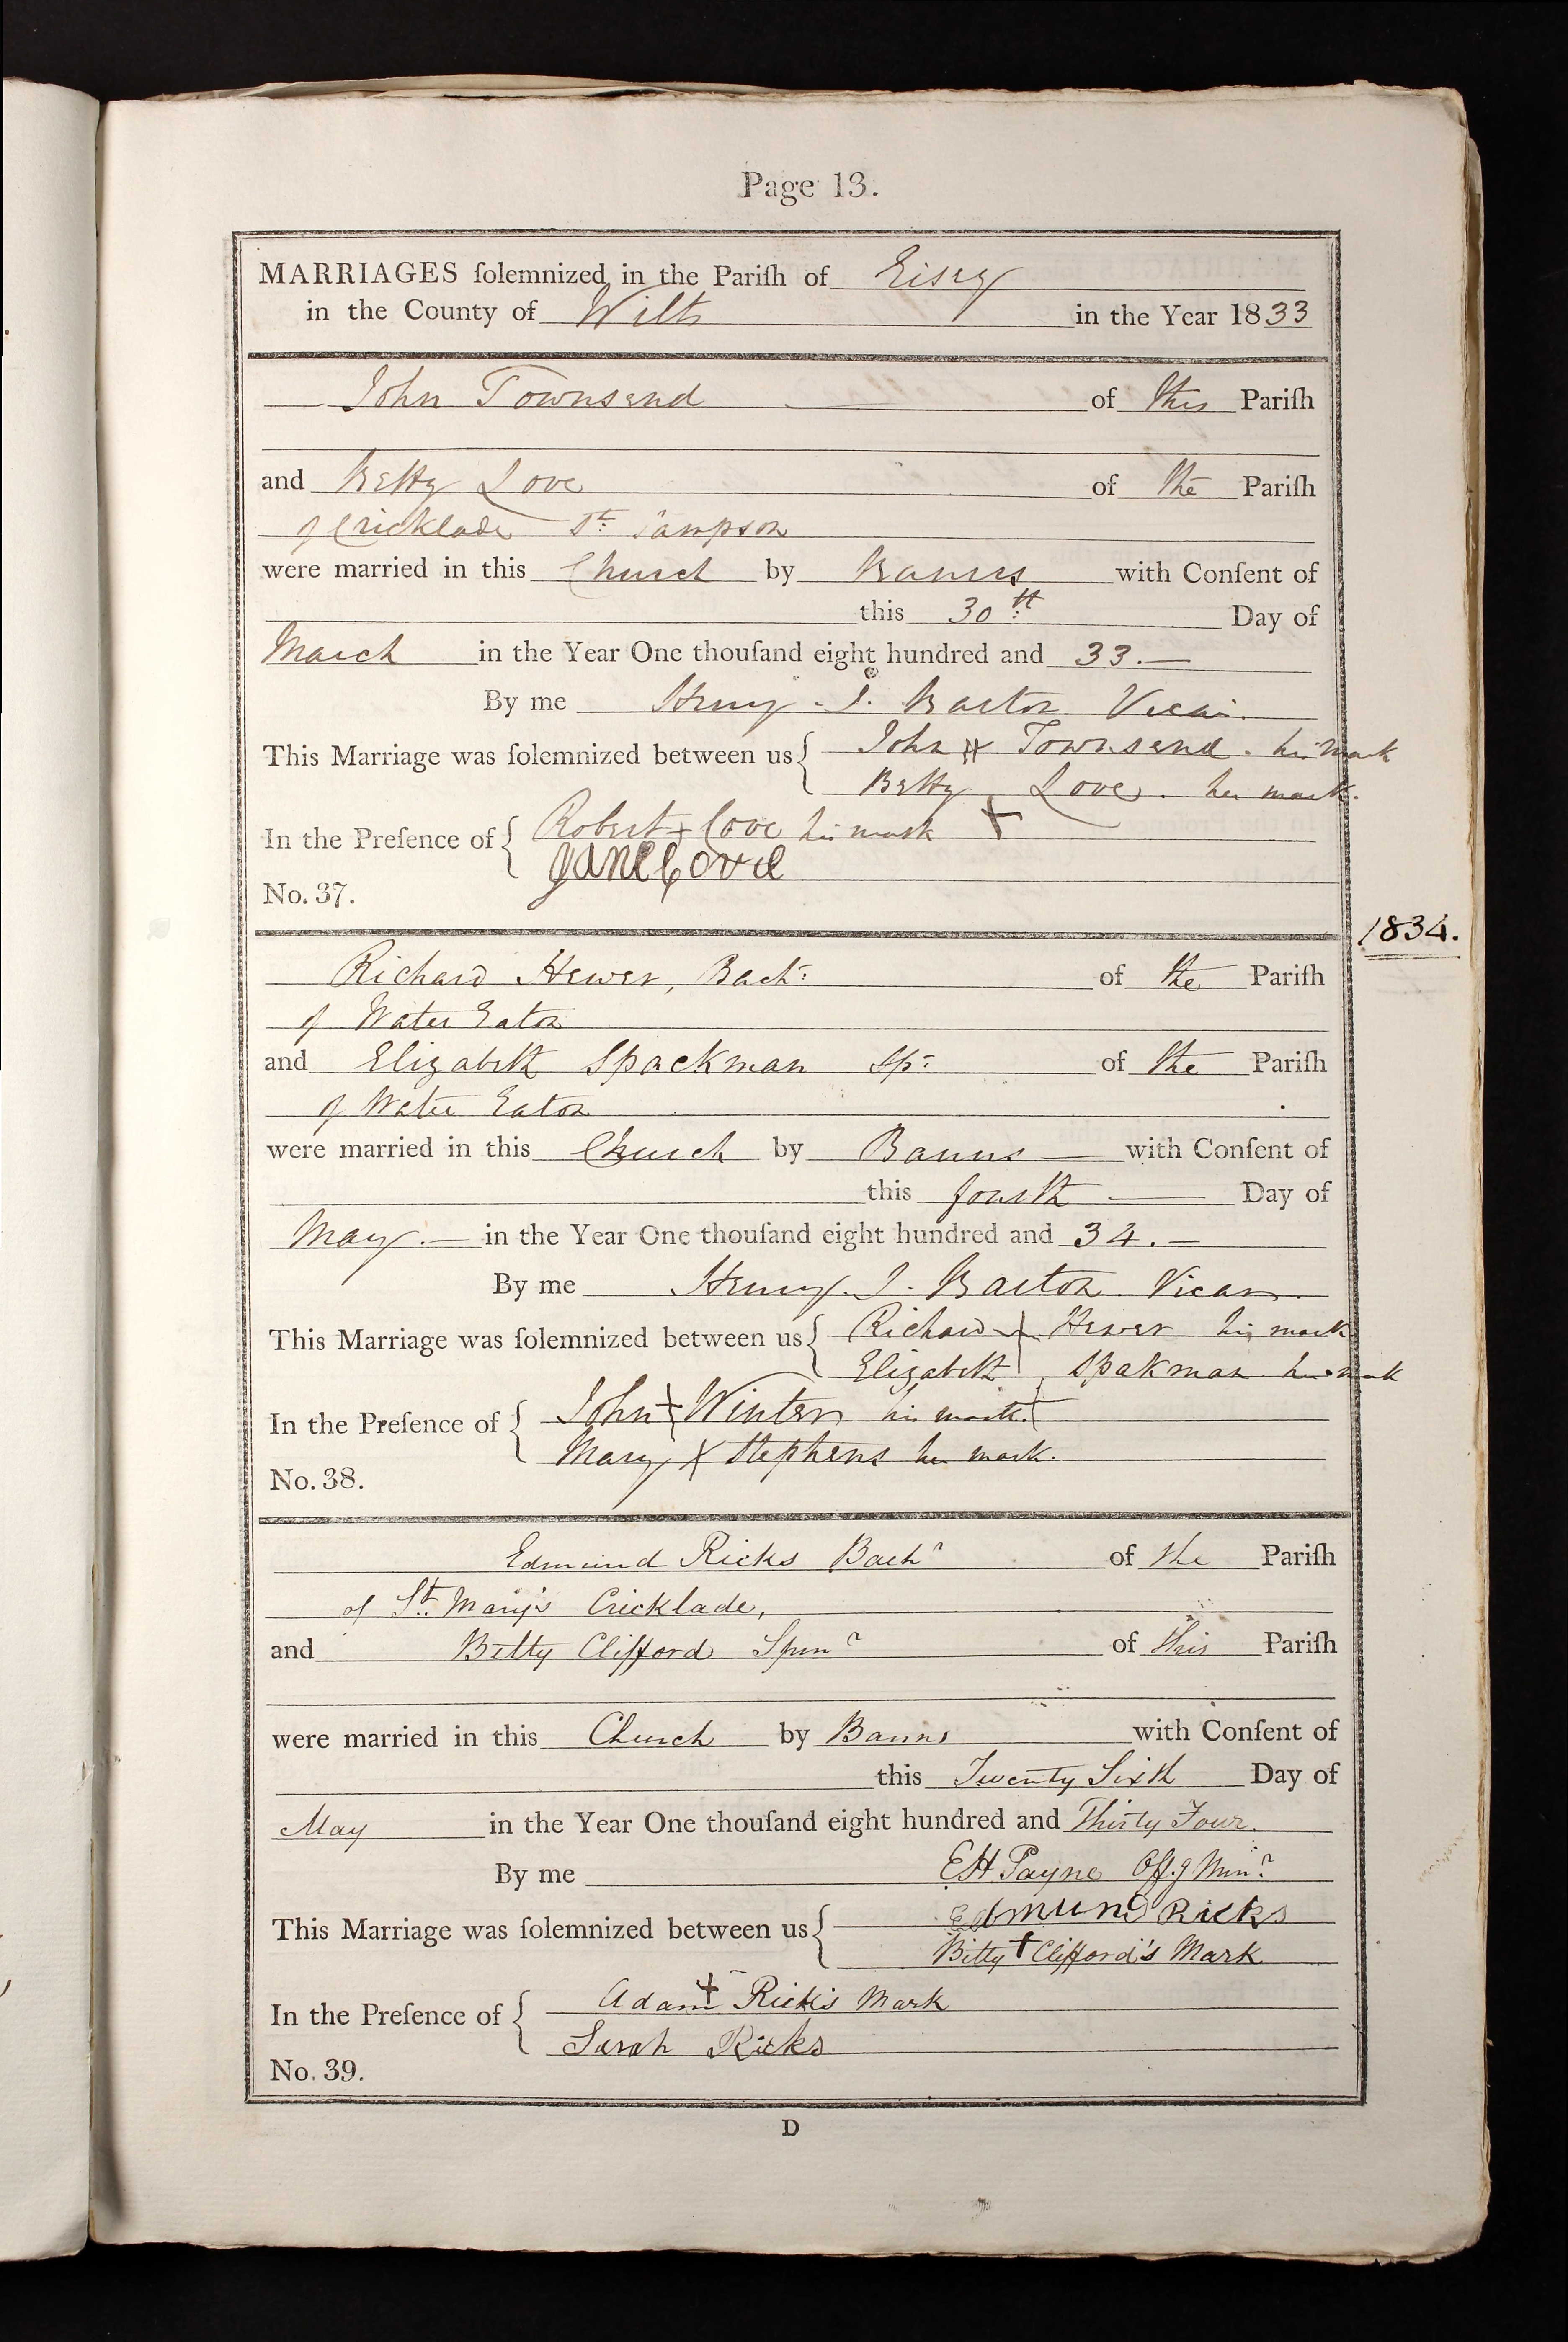 Page 13.
MARRIAGES ſolemnized in the Pariſh of Eisey
in the County of Wilts in the Year 1833
John Townsend of this Pariſh
and Betty Love of the Pariſh
of Cricklade St. Sampson
were married in this Church by Banns with Conſent of
this 30th Day of
March in the Year One thouſand eight hundred and 33.—
By me Henry J. Barton Vicar.
This Marriage was ſolemnized between us { John X Townsend. his mark
Betty Love. her mark.
In the Preſence of { Robert + Cove his mark X
Jane Cove
No. 37.
1834.
Richard Hewer, Bach.r of the Pariſh
of Water Eaton
and Elizabeth Spackman Sp.r of the Pariſh
of Water Eaton
were married in this Church by Banns — with Conſent of
this fourth — Day of
May.— in the Year One thouſand eight hundred and 34.—
By me Henry. J. Barton Vicar.
This Marriage was ſolemnized between us { Richard X Hewer his mark
Elizabeth Spakman her mark
In the Preſence of { John X Winter his mark.
Mary X Stephens her mark.
No. 38.
Edmund Ricks Bachr of the Pariſh
of St. Mary's Cricklade,
and Betty Clifford Spinr of this Pariſh
were married in this Church by Banns with Conſent of
this Twenty Sixth Day of
May in the Year One thouſand eight hundred and Thirty Four.
By me EH Payne Off.g Minr.
This Marriage was ſolemnized between us { Edmund Ricks
Betty + Clifford's Mark
In the Preſence of { Adam + Rick's Mark
Sarah Ricks
No. 39.
D